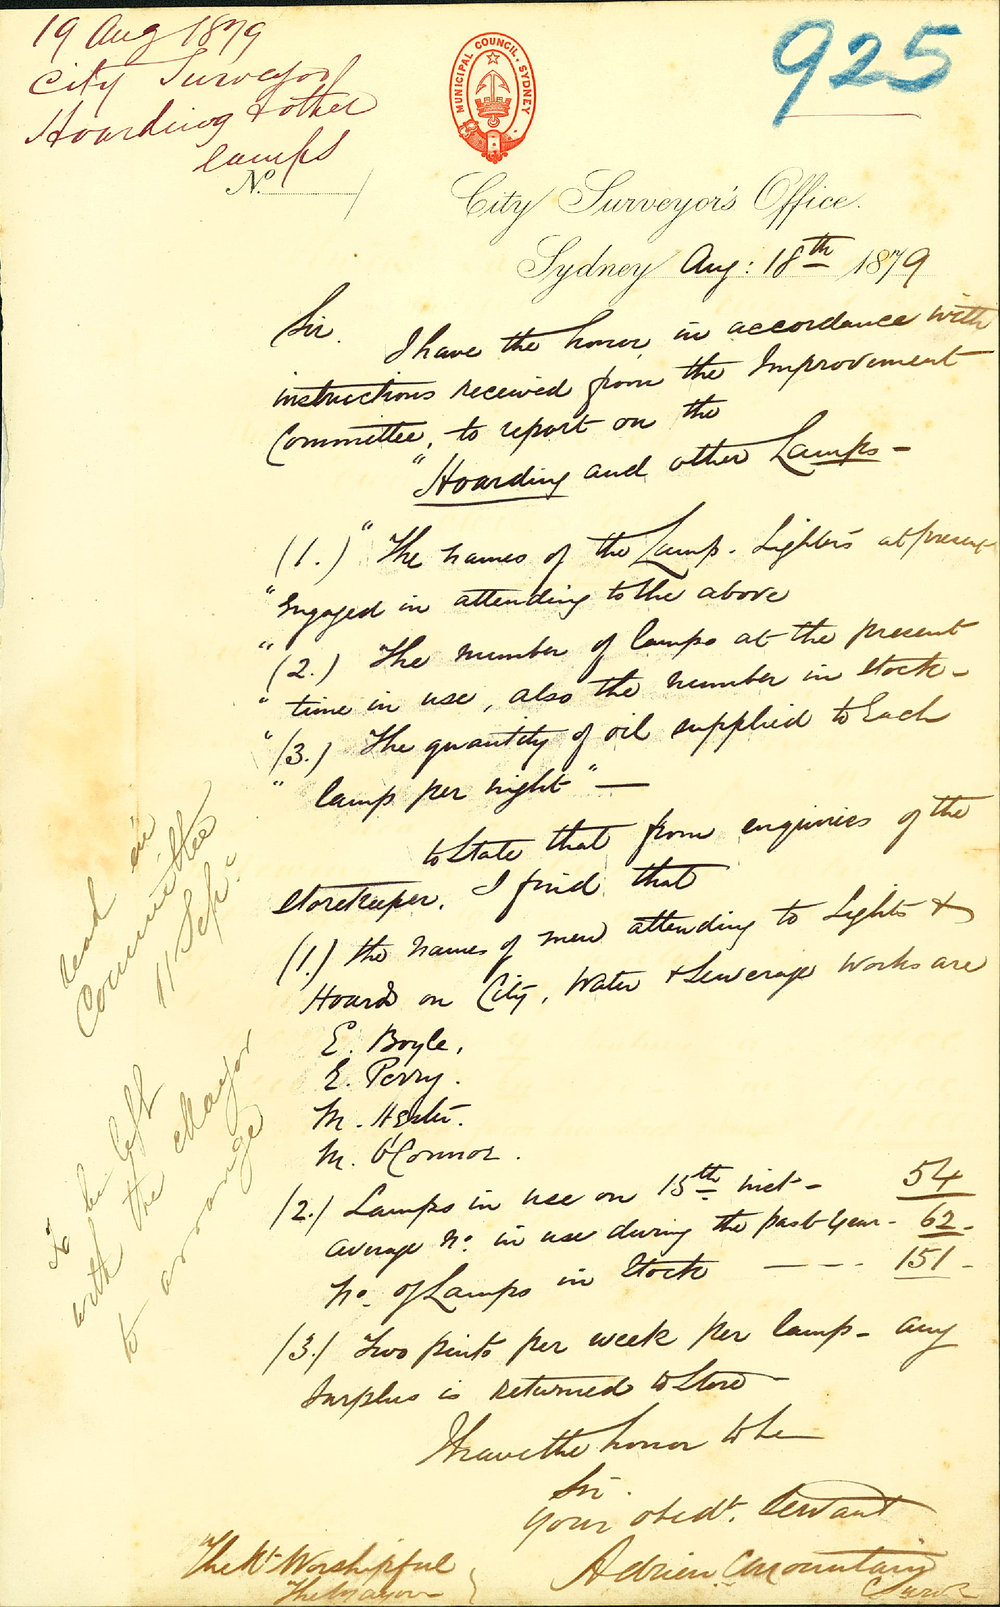 19 Aug 1879
City Surveyor
Hoarding & other
lamps
925
MUNICIPAL COUNCIL, SYDNEY
No.
City Surveyor's Office.
Sydney Aug: 18th 1879
Sir.
I have the honor, in accordance with
instructions received from the Improvement
Committee, to report on the
"Hoarding and other Lamps -
(1.) "The names of the Lamp-Lighters at present
"Engaged in attending to the above
"(2.) The number of lamps at the present
" time in use, also the number in stock -
"(3.) The quantity of oil supplied to Each
" lamp per night" —
to State that from enquiries of the
Storekeeper, I find that
(1.) the names of men attending to Lights &
Hoards on City, Water & Sewerage Works are
E. Boyle,
E. Perry.
M.
M. O'Connor.
(2.) Lamps in use on 15th inst - 54
average No. in use during the past year - 62 -
No. of Lamps in Stock - - - - 151 -
(3.) Two pints per week per lamp - any
Surplus is returned to Store -
I have the honor to be
Sir.
Your obedt. Servant
Adrien C Mountain
C Surv
The Rt. Worshipful
The Mayor
read in
Committee
11 Sepr
To be left
with the Mayor
to arrange